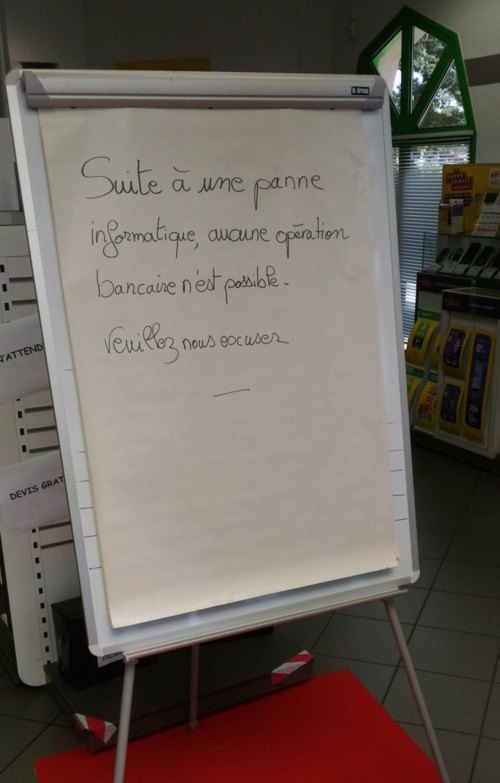 Suite à une panne
informatique, aucune opération
bancaire n'est possible.
Veuillez nous excuser
J'ATTEND
DEVIS GRAT